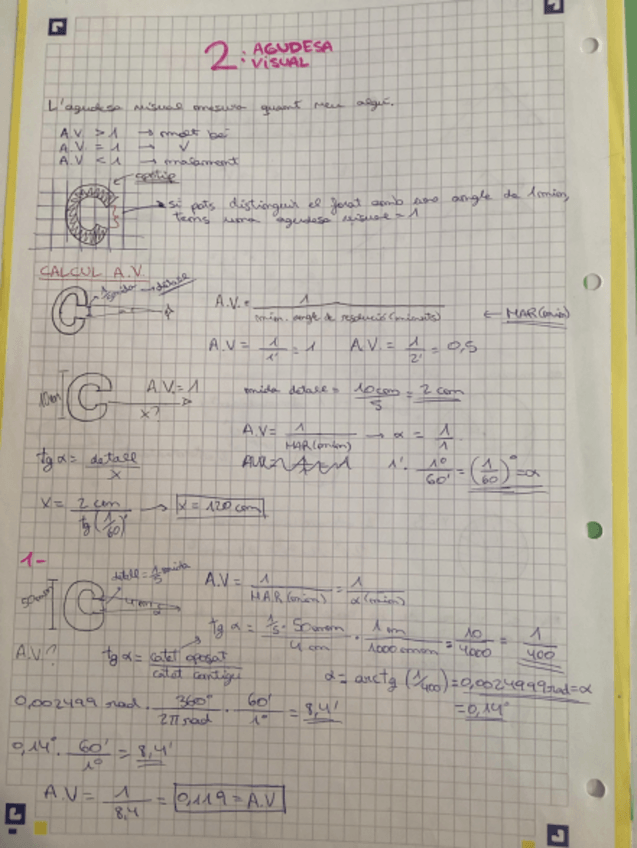 2: AGUDESA VISUAL
L'agudesa visual mesura quant veu algú.
A.V > 1 → molt bé
A.V = 1 → √
A.V < 1 → malament
si pots distingir el forat amb una angle de 1 min,
tens una agudesa visual = 1
CALCUL A.V.
1/5 mida → detall
A.V. = 1 / mín. angle de resolució (minuts) ← MAR (min)
A.V = 1/1' = 1 A.V. = 1/2' = 0,5
10cm A.V. = 1 x?
mida detall = 10cm/5 = 2 cm
A.V = 1/MAR (min) → α = 1/1
tg α = detall/x
1' · 1º/60' = (1/60)º = α
x = 2 cm / tg (1/60)º → x = 120 cm
1-
50mm detall = 1/5 mida 4m α
A.V = 1/MAR (min) = 1/α (min)
tg α = 1/5 · 50mm / 4 m · 1 m / 1000 mm = 10/4000 = 1/400
A.V? tg α = catet oposat / catet contigu
α = arctg (1/400) = 0,0024999 rad = α
= 0,14º
0,002499 rad · 360º/2π rad · 60'/1º = 8,4'
0,14º · 60'/1º = 8,4'
A.V = 1/8,4 = 0,119 = A.V